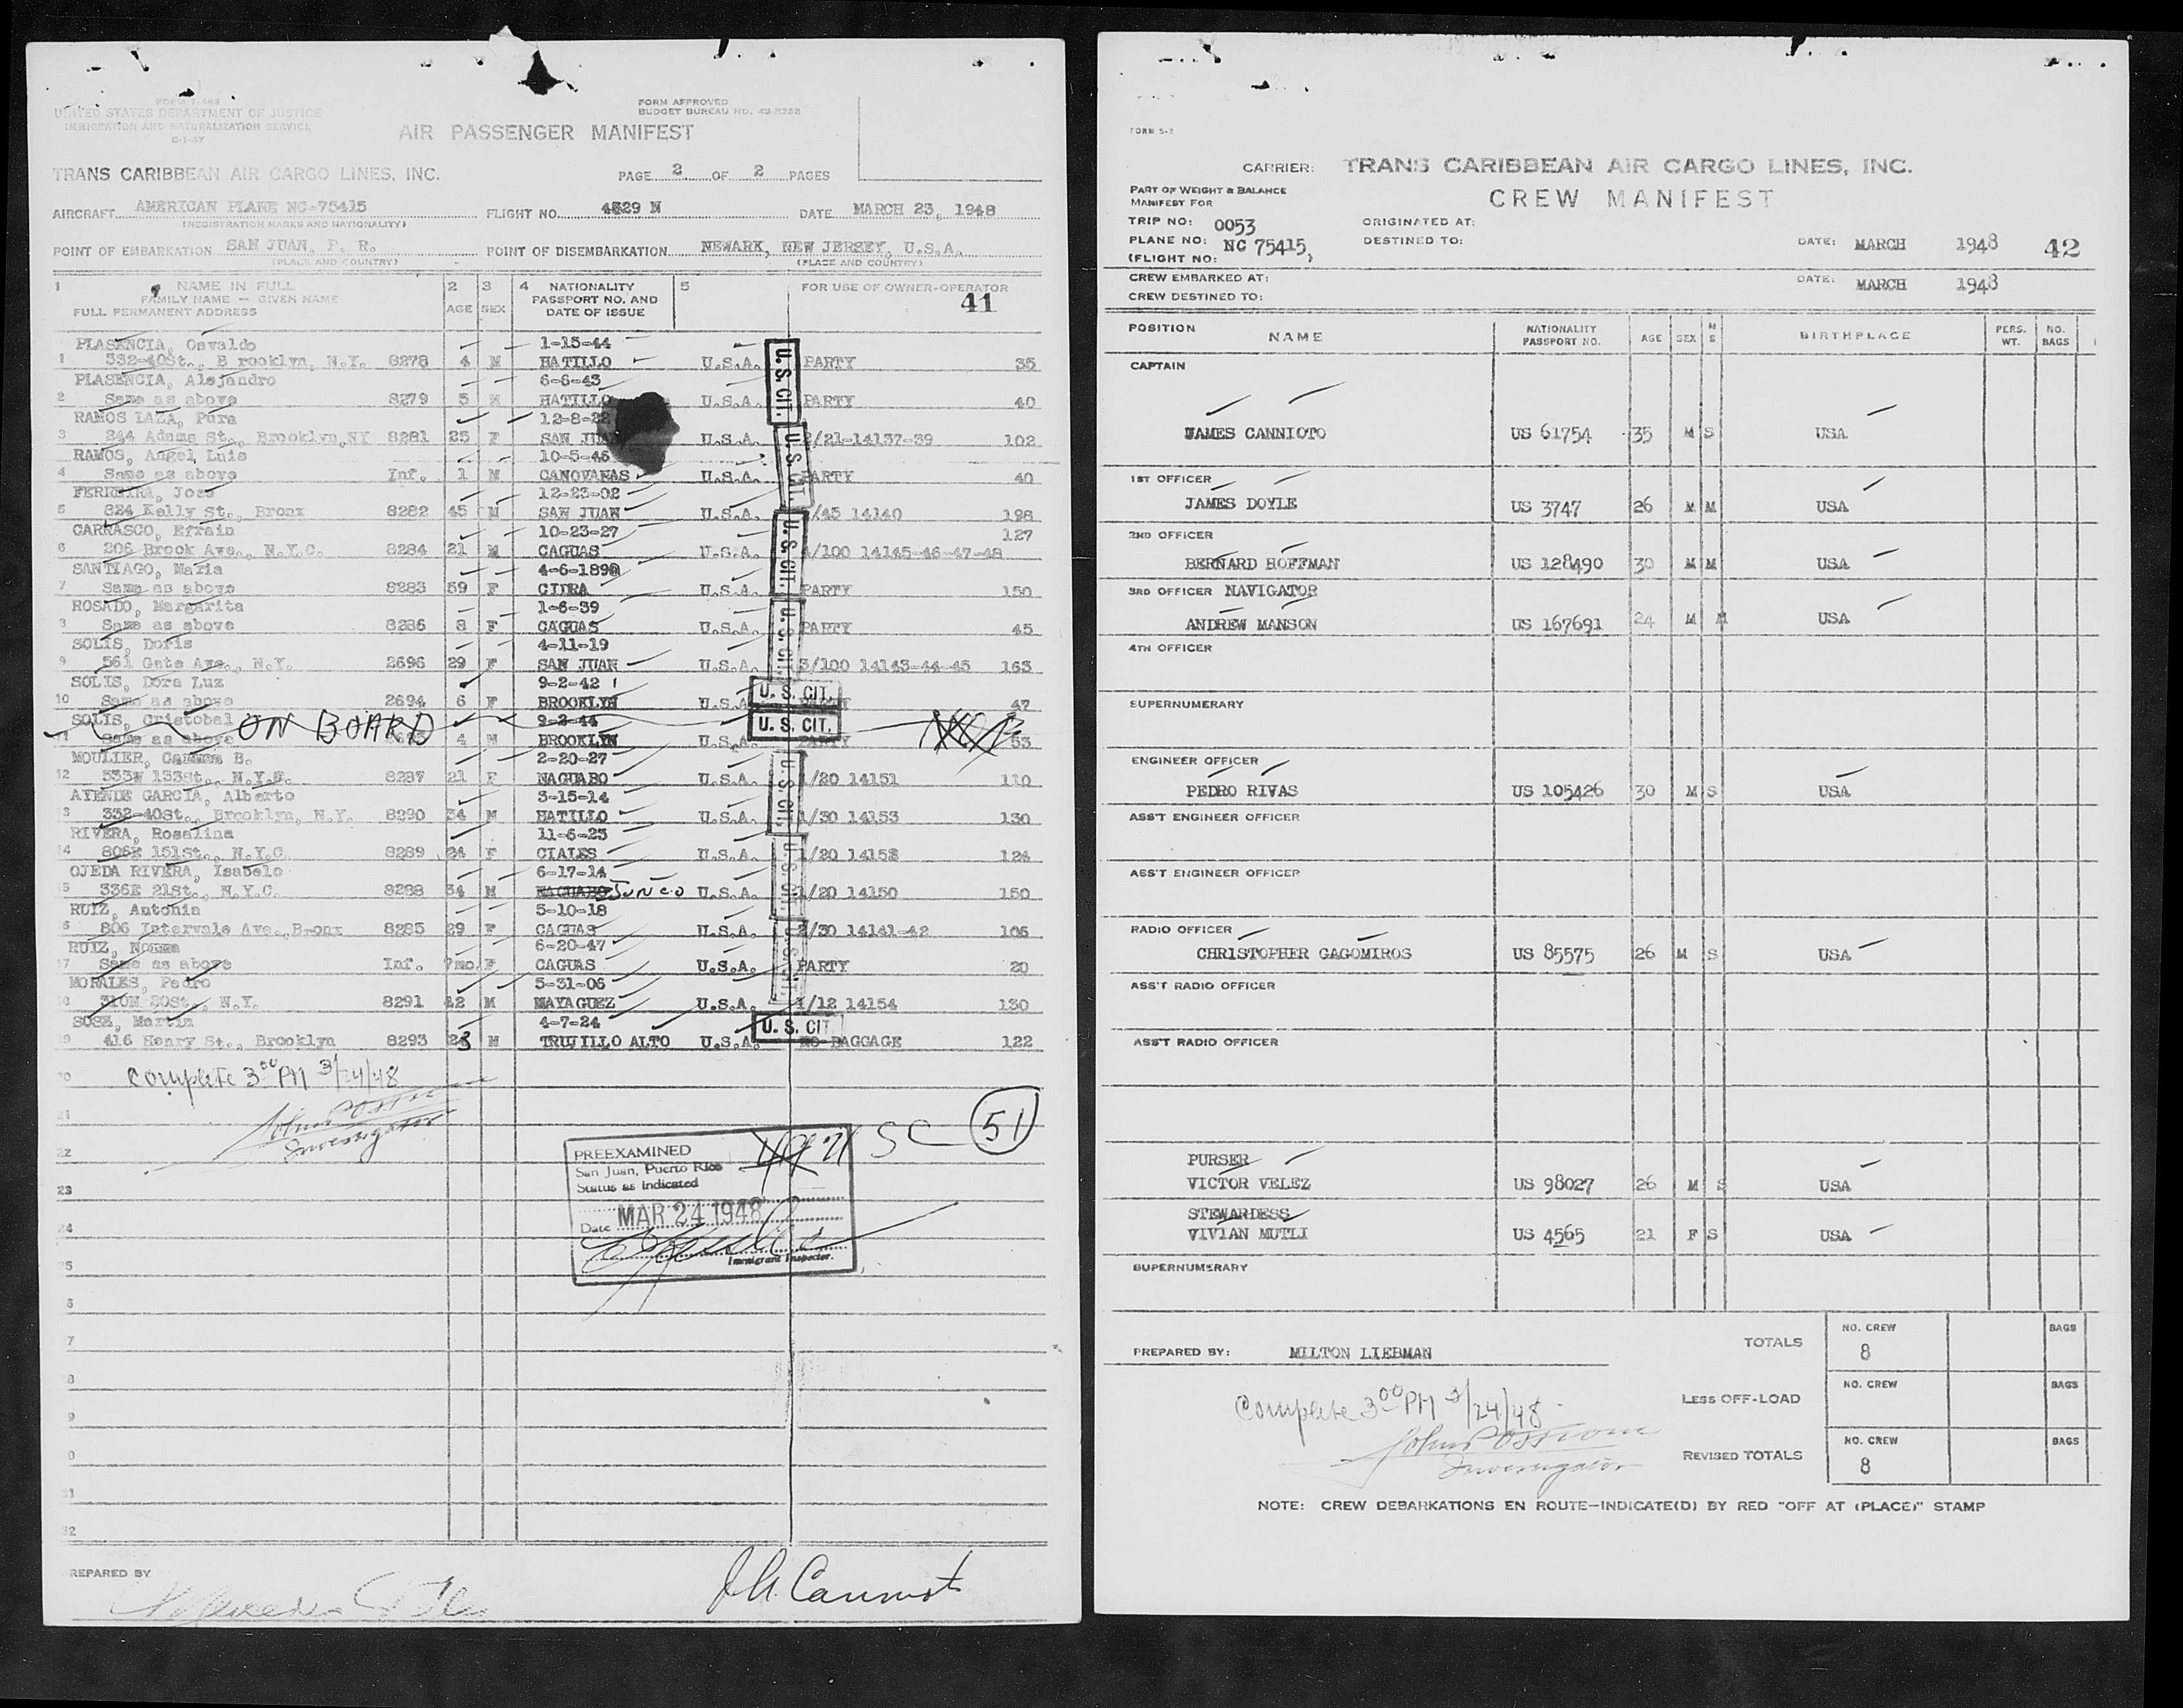 FORM I-466
UNITED STATES DEPARTMENT OF JUSTICE
IMMIGRATION AND NATURALIZATION SERVICE
FORM APPROVED
BUDGET BUREAU NO. 43-R252
AIR PASSENGER MANIFEST
TRANS CARIBBEAN AIR CARGO LINES, INC.
PAGE 2 OF 2 PAGES
AIRCRAFT AMERICAN PLANE NC-75415 FLIGHT NO. 4529 N DATE MARCH 23, 1948
(REGISTRATION MARKS AND NATIONALITY)
POINT OF EMBARKATION SAN JUAN, P. R. POINT OF DISEMBARKATION NEWARK, NEW JERSEY, U.S.A.
(PLACE AND COUNTRY) (PLACE AND COUNTRY)
1 NAME IN FULL 2 3 4 NATIONALITY 5 FOR USE OF OWNER-OPERATOR
FAMILY NAME — GIVEN NAME PASSPORT NO. AND 41
FULL PERMANENT ADDRESS AGE SEX DATE OF ISSUE
PLASENCIA, Osvaldo 1-15-44
1 332-40St., B rooklyn, N.Y. 8278 4 M HATILLO U.S.A. PARTY 35
PLASENCIA, Alejandro 6-6-43
2 Same as above 8279 5 M HATILLO U.S.A. PARTY 40
RAMOS LAZA, Pura 12-8-22
3 244 Adams St., Brooklyn,NY 8281 25 F SAN JUAN U.S.A. 2/21-14137-39 102
RAMOS, Angel Luis 10-5-46
4 Same as above Inf. 1 M CANOVANAS U.S.A. PARTY 40
FERREIRA, Jose 12-23-02
5 824 Kelly St., Bronx 8282 45 M SAN JUAN U.S.A. /45 14140 198
CARRASCO, Efrain 10-23-27 127
6 206 Brook Ave., N.Y.C. 8284 21 M CAGUAS U.S.A. 4/100 14145-46-47-48
SANTIAGO, Maria 4-6-1890
7 Same as above 8283 59 F CIDRA U.S.A. PARTY 150
ROSADO, Margarita 1-6-39
8 Same as above 8286 8 F CAGUAS U.S.A. PARTY 45
SOLIS, Doris 4-11-19
9 561 Gate Ave., N.Y. 2696 29 F SAN JUAN U.S.A. 3/100 14143-44-45 163
SOLIS, Dora Luz 9-2-42
10 Same as above 2694 6 F BROOKLYN U.S.A. U. S. CIT. 47
SOLIS, Cristobal ON BOARD 9-2-44
11 Same as above 4 M BROOKLYN U.S.A. U. S. CIT. PARTY 53
MOULIER, Carmen B. 2-20-27
12 533W 133St., N.Y.C. 8287 21 F NAGUABO U.S.A. 1/20 14151 110
AYENDE GARCIA, Alberto 3-15-14
13 332-40St., Brooklyn, N.Y. 8290 34 M HATILLO U.S.A. 1/30 14153 130
RIVERA, Rosalina 11-6-23
14 806E 151St., N.Y.C. 8289 24 F CIALES U.S.A. 1/20 14152 124
OJEDA RIVERA, Isabelo 6-17-14
15 336E 21St., N.Y.C. 8288 34 M NAGUABO JUNCO U.S.A. 1/20 14150 150
RUIZ, Antonia 5-10-18
16 806 Intervale Ave.,Bronx 8285 29 F CAGUAS U.S.A. 2/30 14141-42 106
RUIZ, Norma 6-20-47
17 Same as above Inf. 7mo. F CAGUAS U.S.A. PARTY 20
MORALES, Pedro 5-31-06
18 310W 20St., N.Y. 8291 42 M MAYAGUEZ U.S.A. 1/12 14154 130
SOSA, Martin 4-7-24
19 416 Henry St., Brooklyn 8293 23 M TRUJILLO ALTO U.S.A. U. S. CIT NO BAGGAGE 122
U. S. CIT.
U. S. CIT.
U. S. CIT.
U. S. CIT.
U. S. CIT.
U. S. CIT.
U. S. CIT.
20 Complete 3 00 PM 3/24/48
21
Investigator
22
23
24
25
6
7
8
9
0
31
32
PREEXAMINED
San Juan, Puerto Rico
Status as Indicated
Date MAR 24 1948
Immigrant Inspector.
SC 51
REPARED BY
FORM S-2
CARRIER: TRANS CARIBBEAN AIR CARGO LINES, INC.
PART OF WEIGHT & BALANCE
MANIFEST FOR
CREW MANIFEST
TRIP NO: 0053 ORIGINATED AT:
PLANE NO: NC 75415, DESTINED TO: DATE: MARCH 1948 42
(FLIGHT NO: )
CREW EMBARKED AT: DATE: MARCH 1948
CREW DESTINED TO:
POSITION NAME NATIONALITY PASSPORT NO. AGE SEX M S BIRTHPLACE PERS. WT. NO. BAGS
CAPTAIN
JAMES CANNIOTO US 61754 35 M S USA
1ST OFFICER
JAMES DOYLE US 3747 26 M M USA
2ND OFFICER
BERNARD HOFFMAN US 128490 30 M M USA
3RD OFFICER NAVIGATOR
ANDREW MANSON US 167691 24 M M USA
4TH OFFICER
SUPERNUMERARY
ENGINEER OFFICER
PEDRO RIVAS US 105426 30 M S USA
ASS'T ENGINEER OFFICER
ASS'T ENGINEER OFFICER
RADIO OFFICER
CHRISTOPHER GAGOMIROS US 85575 26 M S USA
ASS'T RADIO OFFICER
ASS'T RADIO OFFICER
PURSER
VICTOR VELEZ US 98027 26 M S USA
STEWARDESS
VIVIAN MUTLI US 4565 21 F S USA
SUPERNUMERARY
PREPARED BY: MILTON LIEBMAN
TOTALS NO. CREW 8 BAGS
LESS OFF-LOAD NO. CREW BAGS
REVISED TOTALS NO. CREW 8 BAGS
Complete 3 00 PM 3/24/48
Investigator
NOTE: CREW DEBARKATIONS EN ROUTE—INDICATE(D) BY RED "OFF AT (PLACE)" STAMP